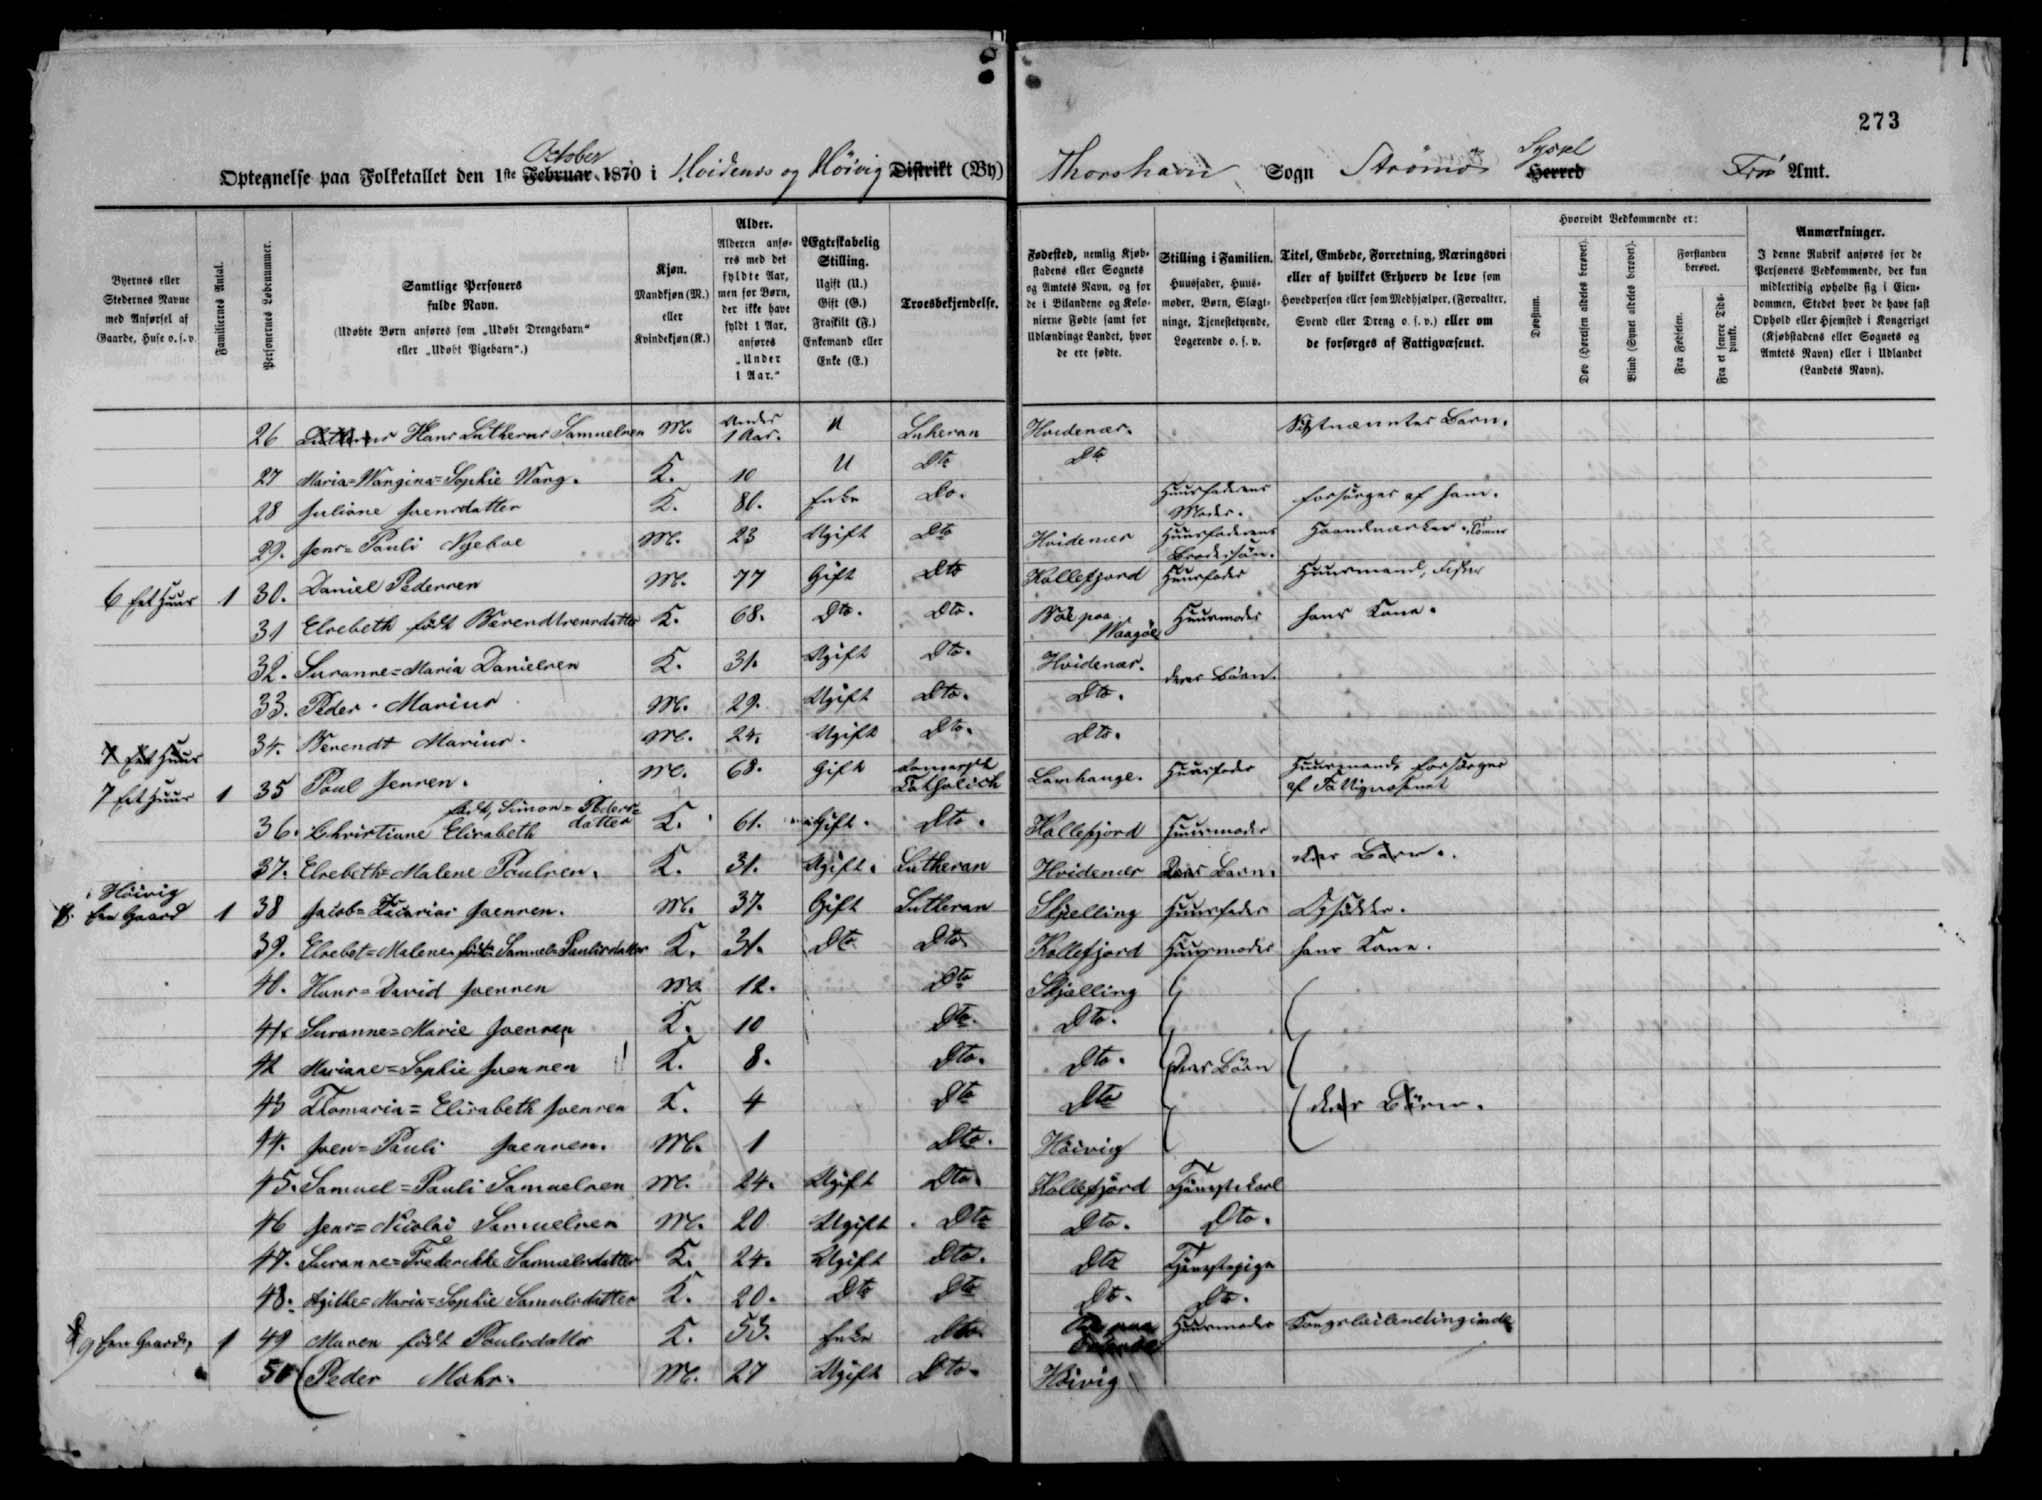 273
Optegnelse paa Folketallet den 1ste Februar October 1870 i Hvidenæs og Höivig Distrikt (By) Thorshavn Sogn Strömö Herred Syssel Frö Amt.
Byernes eller Stedernes Navne med Anførsel af Gaarde, Huse o. s. v.
Familiernes Antal.
Personernes Løbenummer.
Samtlige Personers fulde Navn.
(Udøbte Børn anføres som „Udøbt Drengebarn“ eller „Udøbt Pigebarn“.)
Kjøn.
Mandkjøn (M.) eller Kvindekjøn (K.)
Alder.
Alderen anføres med det fyldte Aar, men for Børn, der ikke have fyldt 1 Aar, anføres „Under 1 Aar.“
Ægteskabelig Stilling.
Ugift (U.) Gift (G.) Fraskilt (F.) Enkemand eller Enke (E.)
Troesbekjendelse.
Fødested, nemlig Kjøbstadens eller Sognets og Amtets Navn, og for de i Bilandene og Kolonierne Fødte samt for Udlændinge Landet, hvor de ere fødte.
Stilling i Familien.
Huusfader, Huusmoder, Børn, Slægtninge, Tjenestetyende, Logerende o. s. v.
Titel, Embede, Forretning, Næringsvei eller af hvilket Erhverv de leve som Hovedperson eller som Medhjælper, (Forvalter, Svend eller Dreng o. s. v.) eller om de forsørges af Fattigvæsenet.
Hvorvidt Vedkommende er:
Døvstum.
Døv (Hørelsen aldeles berøvet).
Blind (Synet aldeles berøvet).
Forstanden berøvet.
Fra Fødselen.
Fra et senere Tidspunkt.
Anmærkninger.
I denne Rubrik anføres for de Personers Vedkommende, der kun midlertidig opholde sig i Eiendommen, Stedet hvor de have fast Ophold eller Hjemsted i Kongeriget (Kjøbstadens eller Sognets og Amtets Navn) eller i Udlandet (Landets Navn).
26 Hans Lutherus Samuelsen M. Under 1 Aar. U Luheran Hvidenæs. Sistnævntes Barn.
27 Maria=Wangina=Sophie Wang. K. 10 U Dto Dto
28 Juliane Joensdatter K. 80. Enke Do. Huusfaderens Moder. forsörges af ham.
29. Jens=Pauli Nyeboe M. 23 Ugift Dto Hvidenæs Huusfaderens Brodersön. Haandværker,
6 Eet Huus 1 30. Daniel Pedersen M. 77 Gift Dto Kollefjord Huusfader Huusmand, Fisker
31 Elsebeth födt Berendtsensdatter K. 68. Dto. Dto. Böe paa Waagöe Huusmoder hans Kone.
32. Susanne=Maria Danielsen K. 31. Ugift Dto. Hvidenæs. deres Börn.
33. Peder Marius M. 29. Ugift Dto. Dto.
7 Eet Huus
34. Berendt Marius. M. 24. Ugift Dto. Dto.
7 Eet Huus 1 35 Poul Jensen. M. 68. Gift Romersk Catholick Lamhauge. Huusfader Huusmand, forsörges af Fattigvæsenet
36. Christiane Elisabeth födt, Simon=Peders=datter K. 61. Gift. Dto. Kollefjord Huusmoder
37. Elsebeth=Malene Poulsen. K. 31. Ugift. Lutheran Hvidenæs Deres Barn. deres Barn.
Höivig
8. Een Gaard 1 38 Jacob=Zacarias Joensen. M. 37. Gift Lutheran Skjelling Huusfader Opsidder.
39. Elsebet=Malene födt Samuel=Paulisdatter K. 31. Dto Dto Kollefjord Huusmoder hans Kone.
40. Hans=David Joensen M. 12. Dto Skjælling
41. Susanne=Marie Joensen K. 10 Dto. Dto.
42 Mariane=Sophie Joensen K. 8. Dto. Dto. Deres Börn
43 Thomaria=Elisabeth Joensen K. 4 Dto Dto deres Börn.
44. Joen=Pauli Joensen. M. 1 Dto. Höivig
45. Samuel=Pauli Samuelsen M. 24. Ugift Dto. Kollefjord Tjenestekarl
46 Jens=Nicolai Samuelsen M. 20 Ugift Dto Dto. Dto.
47. Susanne=Frederikke Samuelsdatter K. 24. Ugift Dto. Dto Tjenestepige
48. Agithe=Maria=Sophie Samulsdatter K. 20. Dto Dto Dto. Dto.
9 Een Gaard, 1 49 Maren födt Poulsdatter K. 53. Enke Dto Huusmoder Kongsleilendinginde
50 Peder Mohr. M. 27 Ugift Dto. Höivig